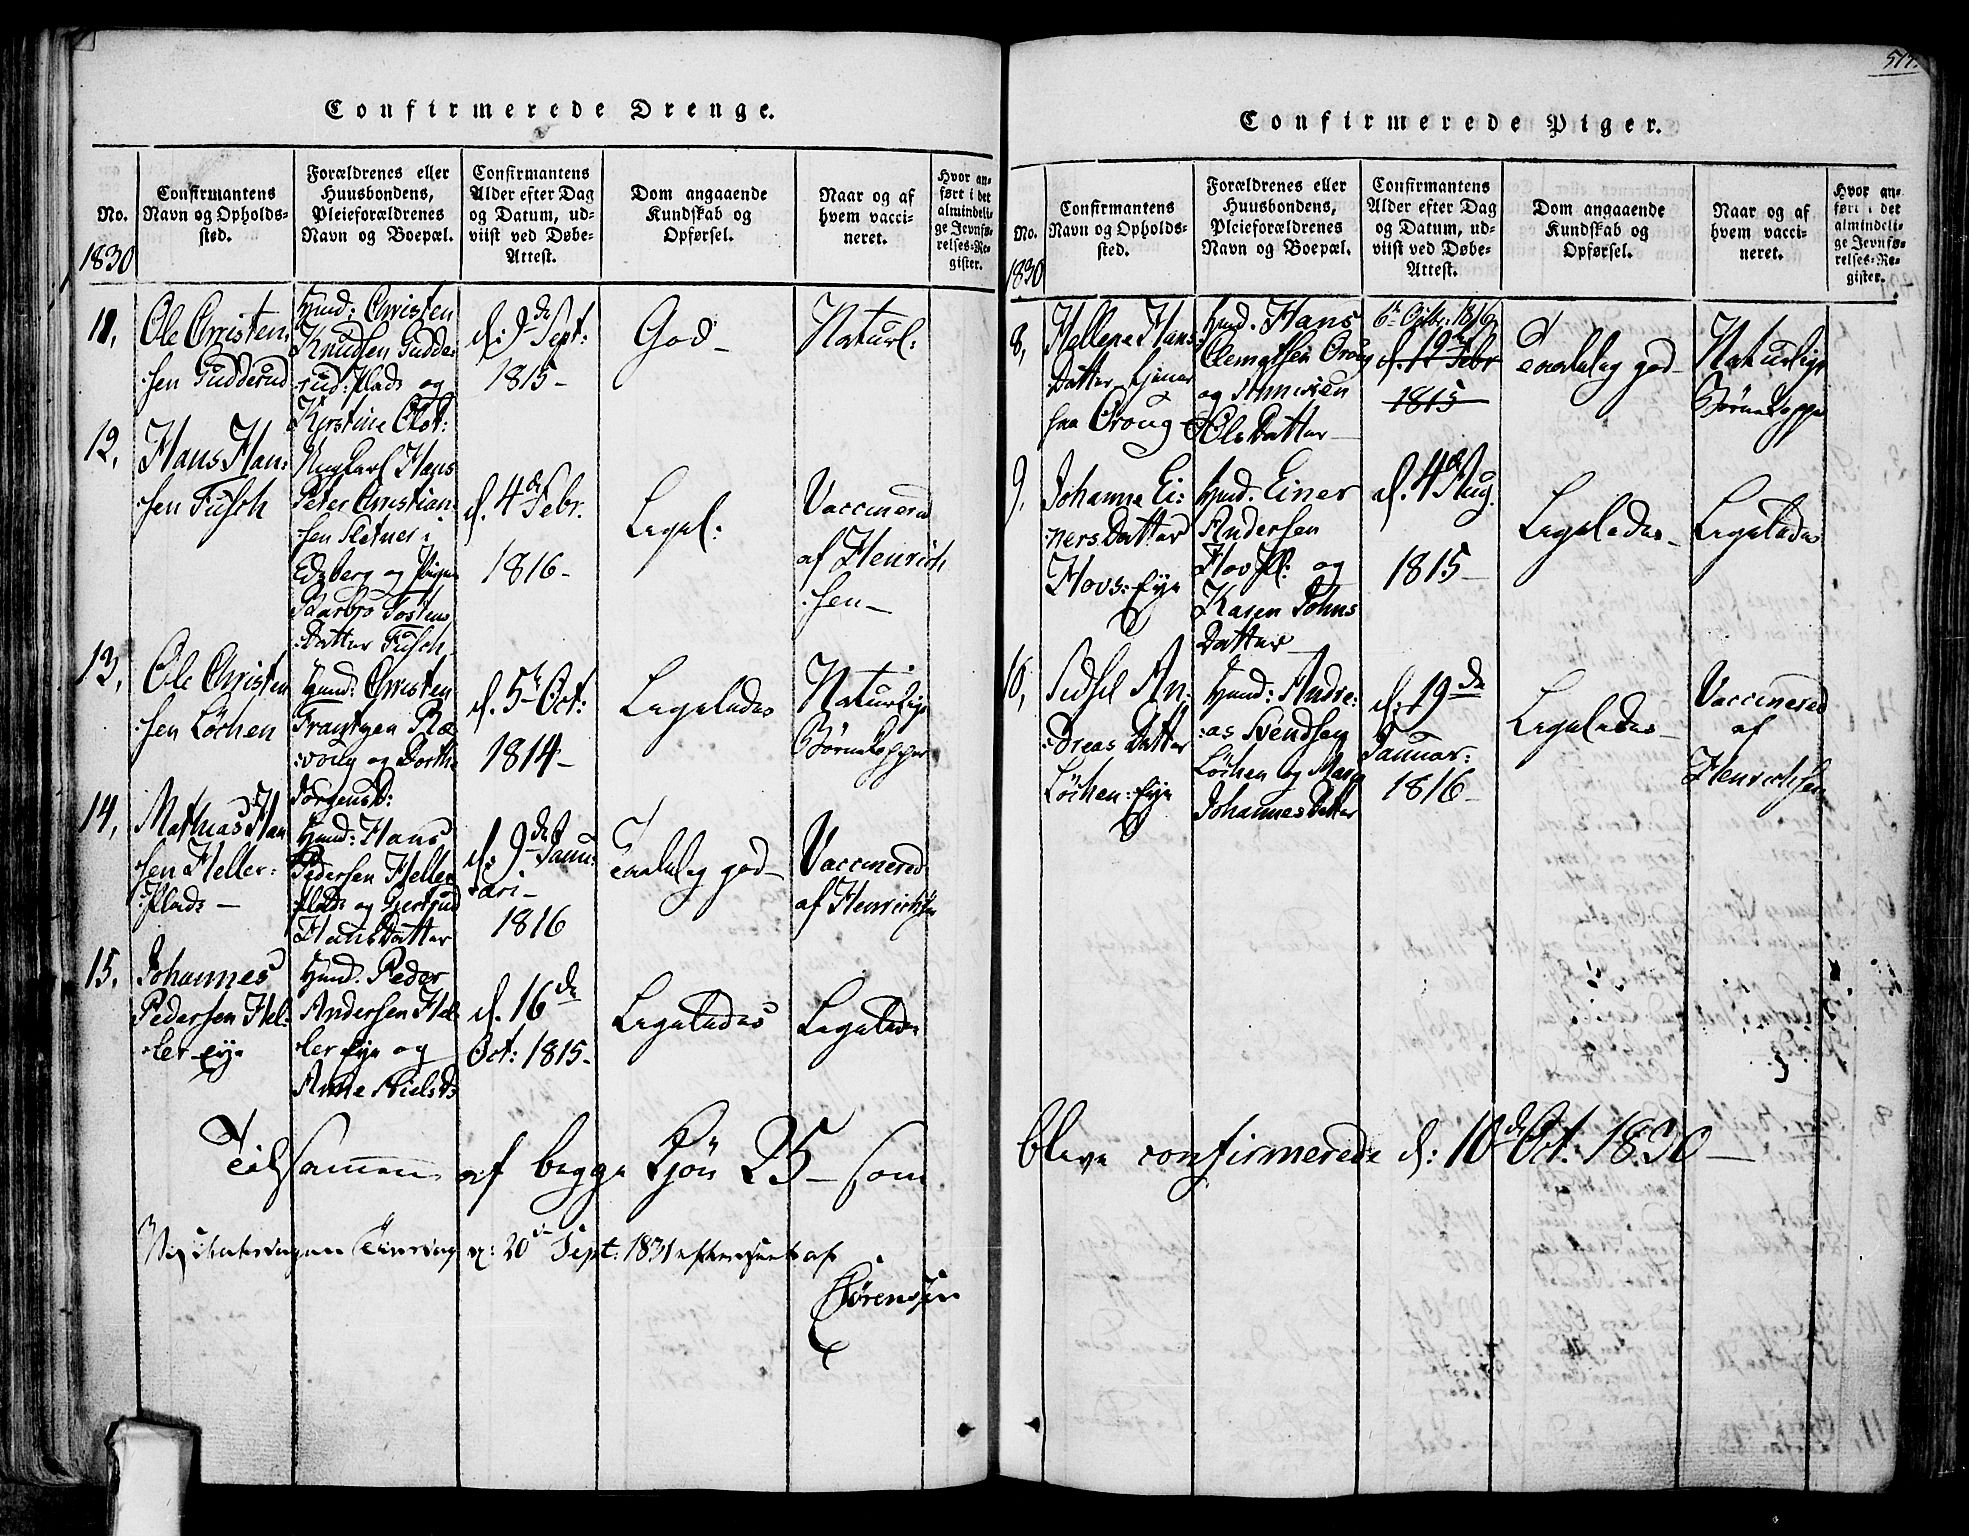 Confirmerede Drenge.
No.
1830
Confirmantens
Navn og Opholds-
sted.
Forældrenes eller
Huusbondens,
Pleieforældrenes
Navn og Boepæl.
Confirmantens
Alder efter Dag
og Datum, ud-
viist ved Døbe-
Attest.
Dom angaaende
Kundskab og
Opførsel.
Naar og af
hvem vacci-
neret.
Hvor an-
ført i det
almindeli-
ge Jevnfø-
relses-Re-
gister.
11,
Ole Christen
sen Gudderud
Huusd: Christen
Knudsen Gudde
rud: Plads og
Kirstine Olsd:
d: 9de Sept:
1815-
God-
Naturl:
12,
Hans Han:
sen Fusch
Ungkarl Hans
Peter Christian
sen Sletner i
Edsberg og Pigen
Barbro Tostens
Datter Fusch
d. 4de Febr.
1816-
Ligel:
Vaccinered
af Henrich
sen-
13,
Ole Christen
sen Löchen
Huusd: Christen
Frantzen Ræ
voug og Dorthe
Jörgensd:
d. 5te Oct:
1814-
Ligeledes
Naturlige
Børnekopper
14,
Mathias Han
sen Heller:
Plads-
Huusd: Hans
Pedersen Heller
plads og Gjertrud
Hans Datter
d: 9de Janu
ari-
1816
Temmelig god-
Vaccinered
af Henrichsen
15,
Johannes
Pedersen Hel:
ler Eye
Huusd. Peder
Andersen Hel
ler Eye og
Anne Nielsd
d. 16de
Oct: 1815-
Ligeledes
Ligeledes
Tilsammen af begge Kjön 25- som
d: 20de Sept: 1831 af
Sörensen
517.
Confirmerede Piger.
No.
1830
Confirmantens
Navn og Opholds-
sted.
Forældrenes eller
Huusbondens,
Pleieforældrenes
Navn og Boepæl.
Confirmantens
Alder efter Dag
og Datum, ud-
viist ved Døbe-
Attest.
Dom angaaende
Kundskab og
Opførsel.
Naar og af
hvem vacci-
neret.
Hvor an-
ført i det
almindeli-
ge Jevnfø-
relses-Re-
gister.
8,
Hellene Hans
Datter tjener
paa Oroug
Huusd. Hans
Clemetsen Oroug
og
Ols Datter-
6te Octbr: 1816
d. 12te Febr
1815
Temmelig god-
Naturlige
Børnekopper
9,
Johanne Ei:
ners Datter
Hovs: Eye
Huusd. Einer
Andersen
Hov Pl: og
Karen Johns
Datter
d. 4de Aug.
1815-
Ligeledes-
Ligeledes
10,
Sidsel An:
dreas Datter
Löchen: Eye
Huusd: Andre:
as Svendsen
Löchen og Mari
Johannes Datter
d. 19de
Januar:
1816-
Ligeledes-
Vaccinered
af
Henrichsen
bleve confirmerede d: 10de Oct. 1830-